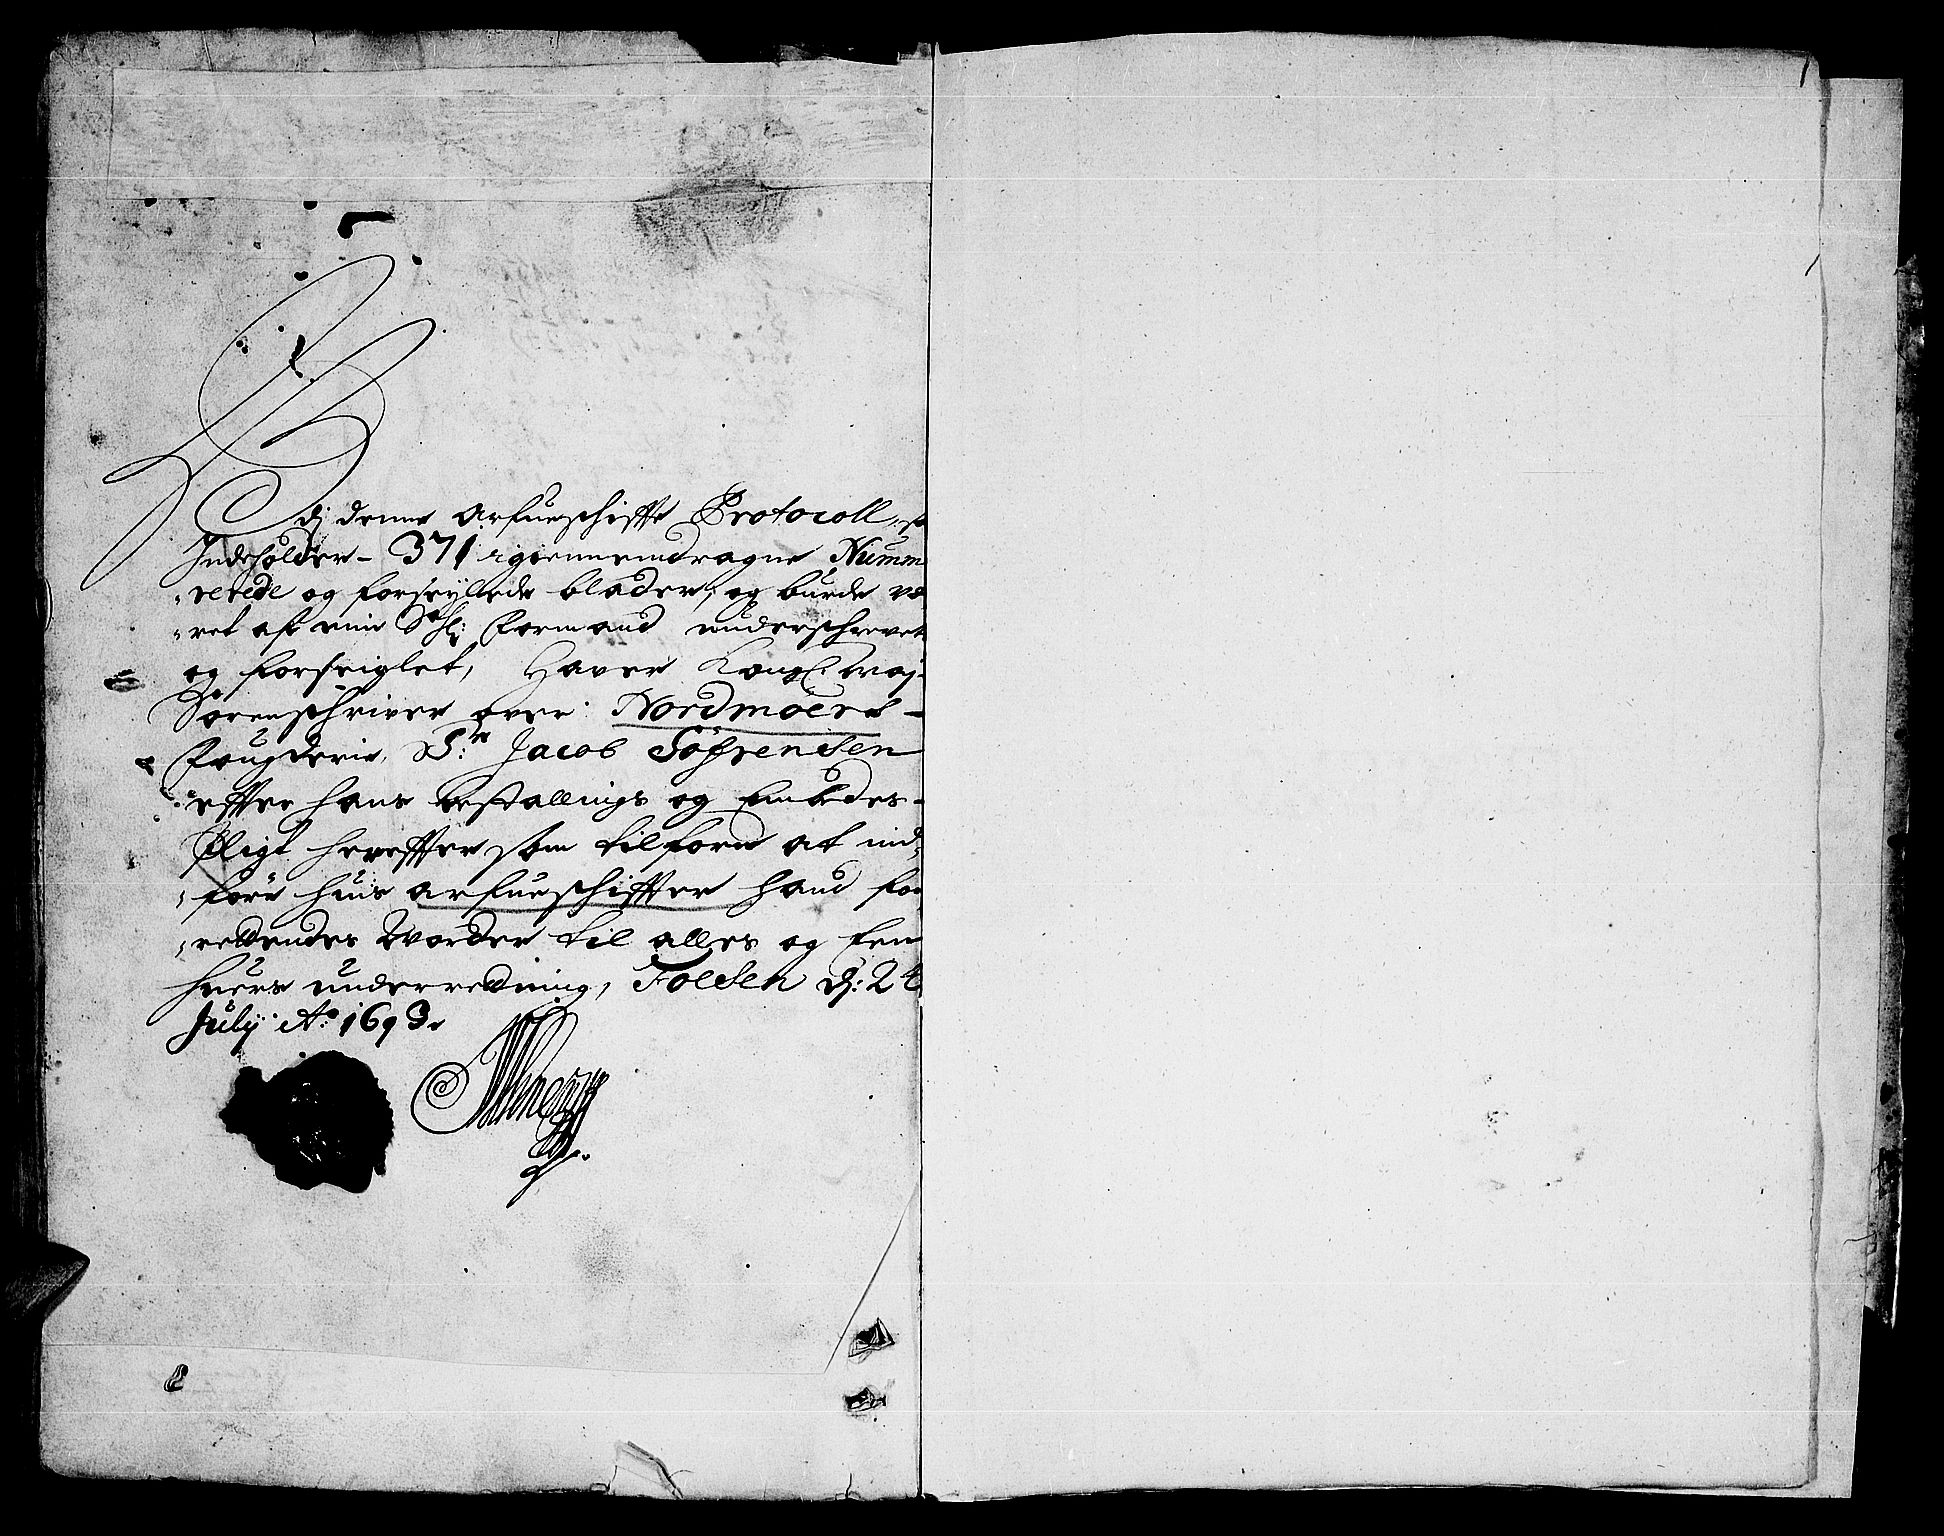 Udj denne Arfueschifte Protocoll, so
Indeholder 371 igiennemdragne Numm
rerede og forseylede blader, og burde væ
ret af min Sahl: Formand underschrevet
og forseiglet, Haver Kongl: Maj:
Sorenschriver over Nordmøers
Fougderie, Sr: Jacob Søfrensen
effter hans bestallings og Embedes
Pligt hereffter som tilforn at ind
føre huis arfueschiffter hand for
rettendes Worder til alles og Een
huers underretning, Folden dj: 24
July Ao 1693